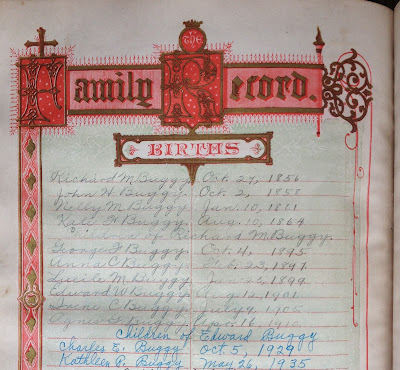 The
Family Record.
BIRTHS
Richard M Buggy Oct. 27, 1856
John H Buggy Oct. 2, 1858
Nelly M Buggy Jan. 10, 1861
Kate H Buggy Aug. 10, 1864
Children of Richard M. Buggy
George F Buggy Oct. 4, 1895
Anna C Buggy Feb. 23, 1897
Lucile M. Buggy 1899
Edward W Buggy Aug. 12, 1901
Buggy July 9, 1905
Buggy
Children of Edward Buggy
Charles E. Buggy Oct 5, 1929
Kathleen P. Buggy May 26, 1935